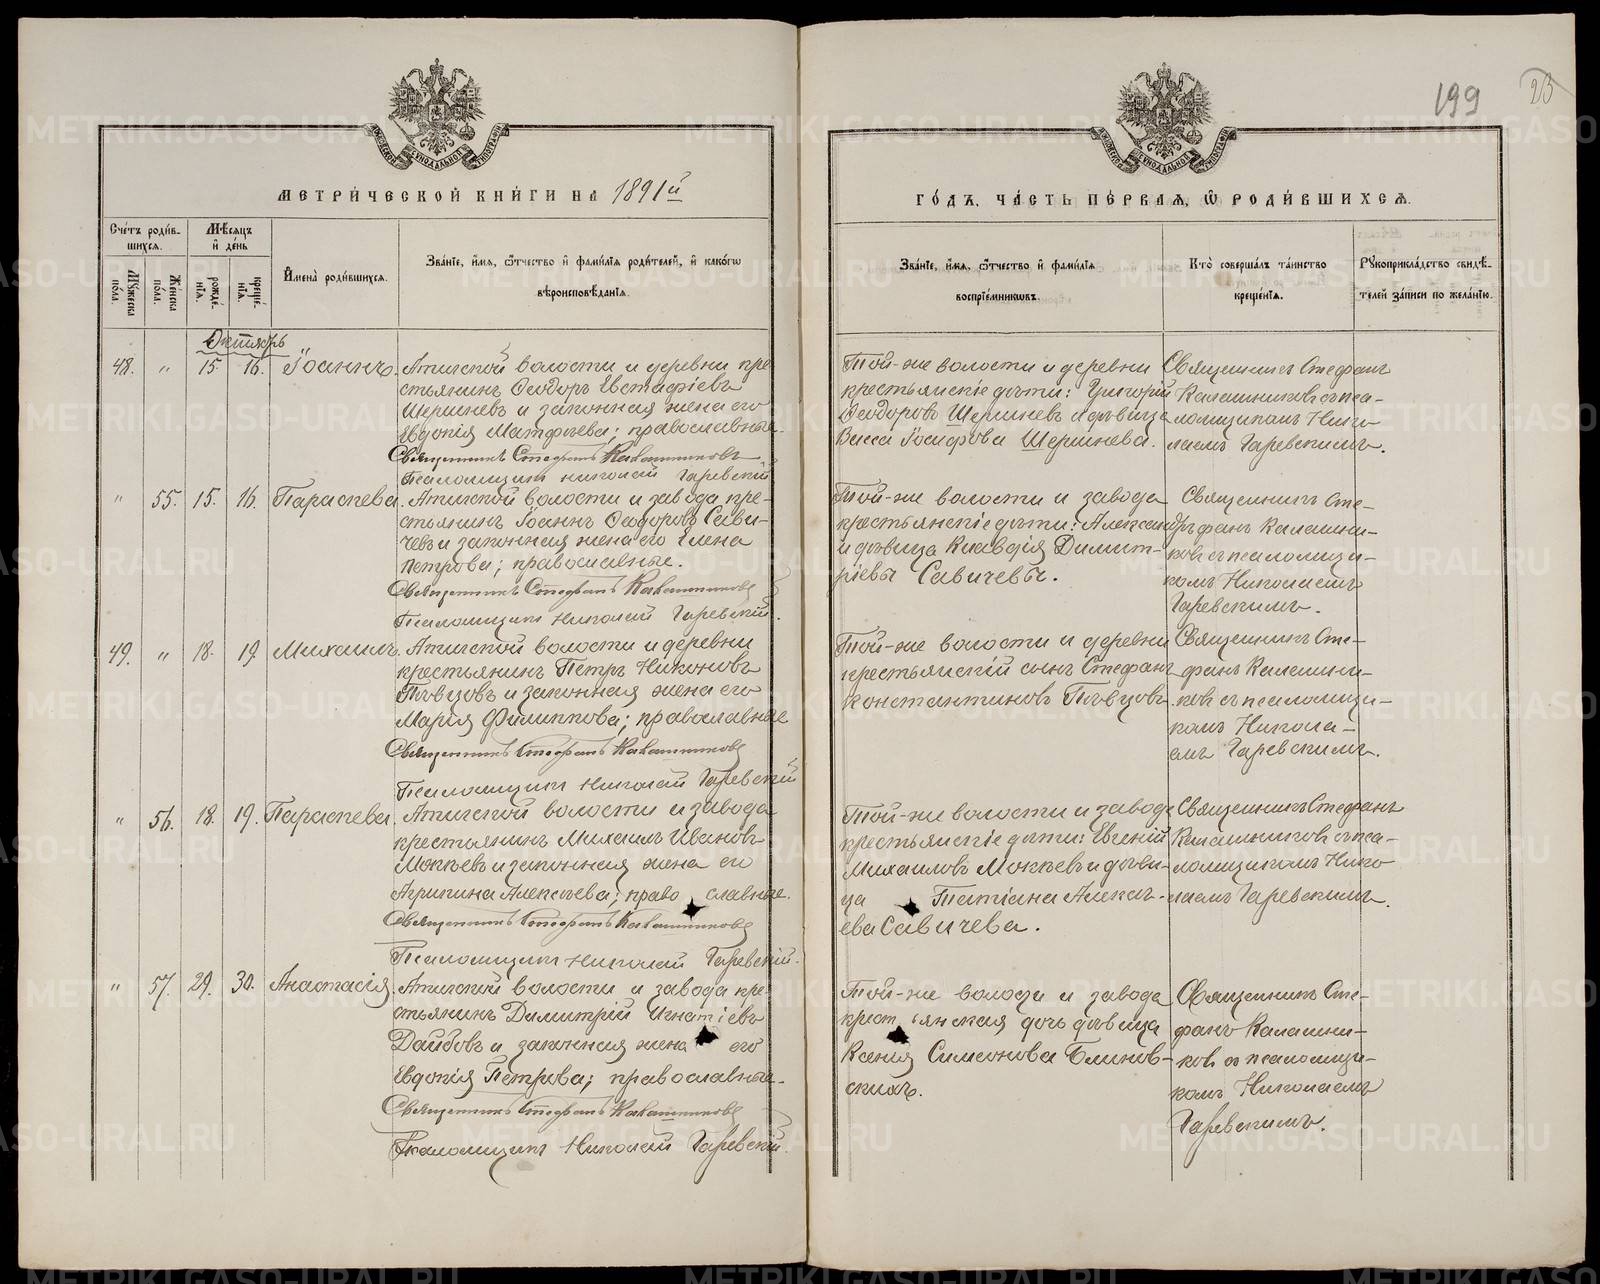 199
23
МЕТРИ́ЧЕСКОЙ КНИ́ГИ НА 1891й
ГО́ДЪ, ЧА́СТЬ ПЕ́РВАЯ, Ѿ РОДИ́ВШИХСЯ.
Сче́тъ роди́в-
шихся.
Му́жеска по́ла.
Же́нска по́ла.
Мѣ́сяцъ и де́нь
рожде́-
нїя.
креще́-
нїя.
Имена̀ роди́вшихся.
Зва́нїе, и́мя, ѻ҆́тчество и фами́лїя роди́телей, и како́гѡ
вѣроисповѣ́данїя.
Зва́нїе, и́мя, ѻ҆́тчество и фами́лїя
воспрїе́мникѡвъ.
Кто̀ соверша́лъ та́инство
креще́нїя.
Рукоприкла́дство свидѣ́-
телей за́писи по жела́нїю.
Октябрь
48. " 15. 16. Іоаннъ.
Атигской волости и деревни кре
стьянинъ Ѳеодоръ Евстафіевъ
Шершневъ и законная жена его
Евдокія Матфѣева; православные.
Священникъ Стефанъ Калашниковъ
Псаломщикъ Николай Гаревскій
Той-же волости и деревни
крестьянскіе дѣти: Григорій
Ѳеодоровъ Шершневъ и дѣвица
Васса Іосифова Шершнева.
Священникъ Стефанъ
Калашниковъ съ пса-
ломщикомъ Нико
лаемъ Гаревскимъ.
" 55. 15. 16. Параскева.
Атигской волости и завода кре-
стьянинъ Іоаннъ Ѳеодоровъ Сави-
чевъ и законная жена его Елена
Петрова; православные.
Священникъ Стефанъ Калашниковъ
Псаломщикъ Николай Гаревскій.
Той-же волости и завода
крестьянскіе дѣти: Александръ
и дѣвица Клавдія Димит-
ріевы Савичевы.
Священникъ Сте-
фанъ Калашни-
ковъ съ псаломщи-
комъ Николаемъ
Гаревскимъ.
49. " 18. 19. Михаилъ.
Атигской волости и деревни
крестьянинъ Петръ Никоновъ
Пѣвцовъ и законная жена его
Марія Филиппова; православные
Священникъ Стефанъ Калашниковъ
Псаломщикъ Николай Гаревскій
Той-же волости и деревни
крестьянскій сынъ Стефанъ
Константиновъ Пѣвцовъ.
Священникъ Сте-
фанъ Калашни-
ковъ съ псаломщи-
комъ Никола-
емъ Гаревскимъ.
" 56. 18. 19. Параскева.
Атигской волости и завода
крестьянинъ Михаилъ Ивановъ
Мокѣевъ и законная жена его
Агрипина Алексѣева; право славные.
Священникъ Стефанъ Калашниковъ
Псаломщикъ Николай Гаревскій.
Той-же волости и завода
крестьянскіе дѣти: Евгеній
Михаиловъ Мокѣевъ и дѣви-
ца Татіана Алексѣ-
ева Савичева.
Священникъ Стефанъ
Калашниковъ съ пса-
ломщикомъ Нико
лаемъ Гаревскимъ.
" 57. 29. 30. Анастасія.
Атигской волости и завода кре-
стьянинъ Димитрій Игнатіевъ
Дайбовъ и законная жена его
Евдокія Петрова; православные.
Священникъ Стефанъ Калашниковъ
Псаломщикъ Николай Гаревскій.
Той-же волости и завода
крест янская дочь дѣвица
Ксенія Симеонова Блинов-
скихъ.
Священникъ Сте-
фанъ Калашни-
ковъ съ псаломщи-
комъ Николаемъ
Гаревскимъ.
METRIKI.GASO-URAL.RU